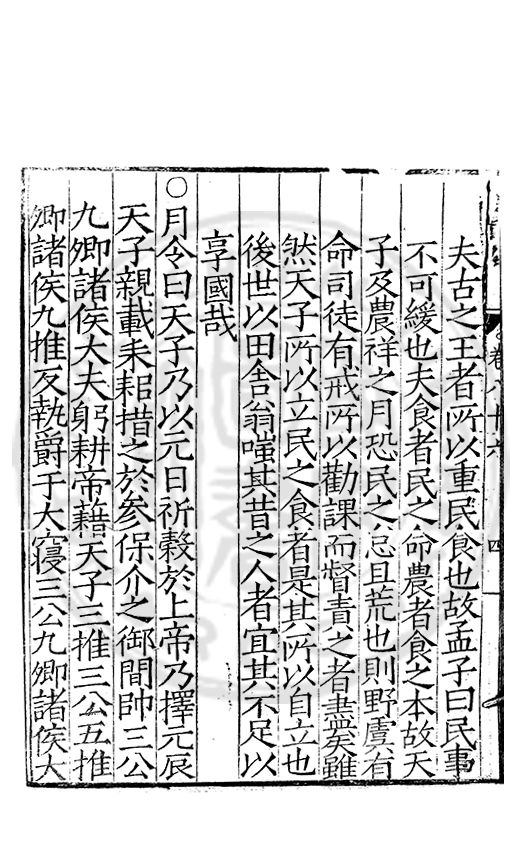 卷八十六　四
夫古之王者所以重民食也故孟子曰民事
不可緩也夫食者民之命農者食之本故天
子及農祥之月恐民之忘且荒也則野虞有
命司徒有戒所以勸課而督責之者盡矣雖
然天子所以立民之食者是其所以自立也
後世以田舍翁嗤其昔之人者宜其不足以
享國哉
○月令曰天子乃以元日祈穀於上帝乃擇元辰
天子親載耒耜措之於參保介之御間帥三公
九卿諸侯大夫躬耕帝藉天子三推三公五推
卿諸侯九推反執爵于大寢三公九卿諸侯大